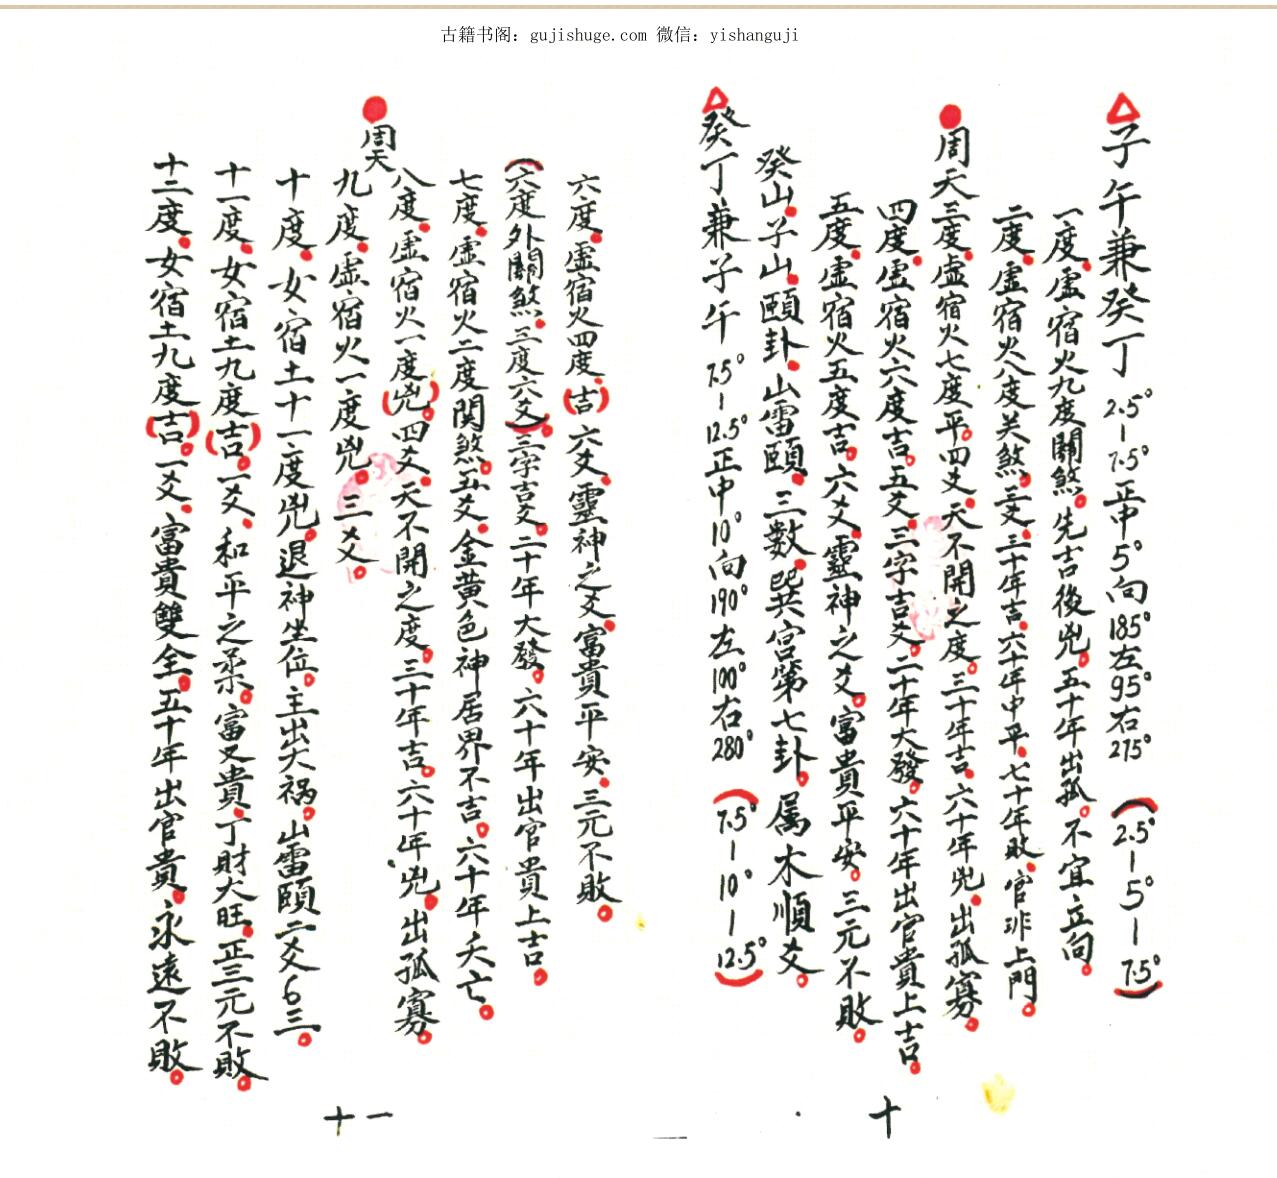 古籍书阁：gujishuge.com 微信：yishanguji
子午兼癸丁 2.5°-7.5°正中5°向185°左95°右275° (2.5°-5°-7.5°)
一度。虚宿火九度關煞。先吉後兇。五十年出孤。不宜立向。
二度。虚宿火八度关煞。三爻。三十年吉。六十年中平。七十年败。官非上門。
周天三度。虚宿火七度平。四爻。天不開之度。三十年吉。六十年兇。出孤寡。
四度。虚宿火六度吉。五爻。三字吉爻。二十年大發。六十年出官貴上吉。
五度。虚宿火五度吉。六爻。靈神之爻。富貴平安。三元不敗。
癸山。子山。頤卦。山雷頤。三數。巽宫第七卦。属木順爻。
癸丁兼子午 7.5°-12.5°正中10°向190°左100°右280° (7.5°-10°-12.5°)
十
六度。虚宿火四度。(吉)六爻。靈神之爻。富貴平安。三元不敗。
(六度外關煞。三度六爻)。三字吉爻。二十年大發。六十年出官貴上吉。
七度。虚宿火二度関煞。五爻。金黄色神居界不吉。六十年夭亡。
八度。虚宿火一度(兇)。四爻。天不開之度。三十年吉。六十年兇。出孤寡。
周天
九度。虚宿火一度兇。三爻。
十度。女宿土十一度兇。退神坐位。主出大祸。山雷頤二爻6三。
十一度。女宿土九度(吉)。一爻。和平之。富又貴。丁財大旺。正三元不敗。
十二度。女宿土九度(吉)。一爻。富貴雙全。五十年出官貴。永遠不敗。
十一